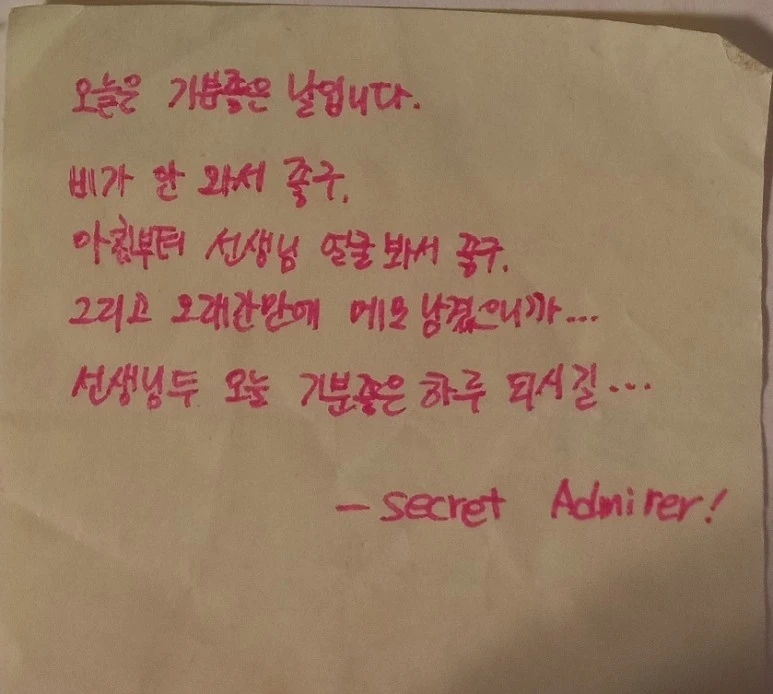 오늘은 기분좋은 날입니다.
비가 안 와서 좋구,
아침부터 선생님 얼굴 봐서 좋구,
그리고 오래간만에 메모 남겼으니까...
선생님두 오늘 기분좋은 하루 되시길...
- secret Admirer!